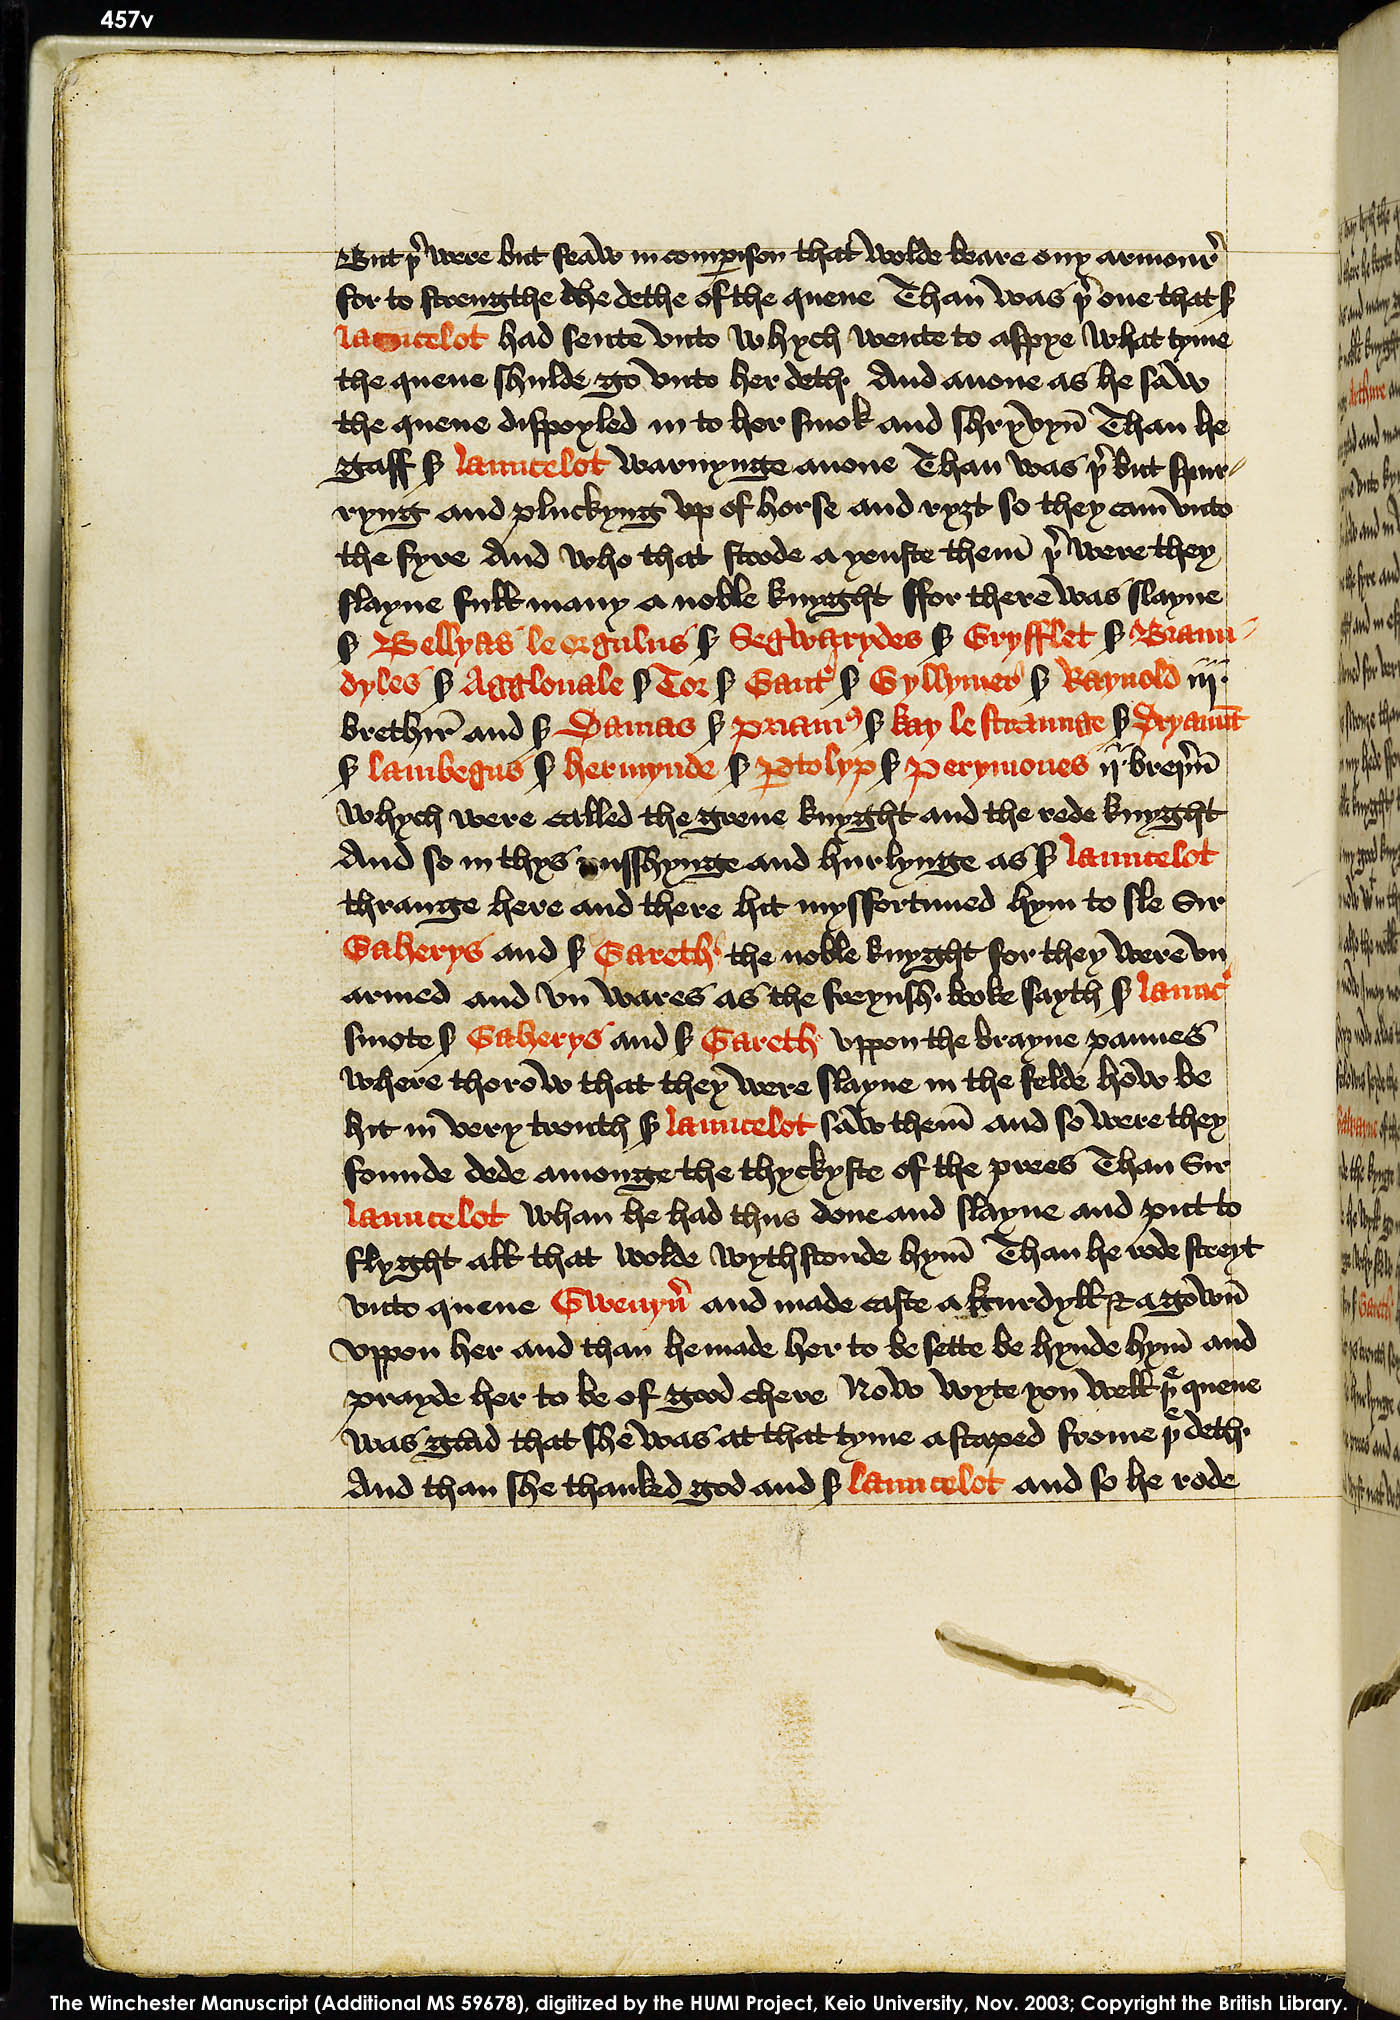 457v
But þr were but feaw in comparison that wolde beare ony armour
for to strengthe the dethe of the quene Than was þr one that sr
launcelot had sente vnto whych wente to aspye what tyme
the quene shulde go vnto her deth· And anone as he saw
the quene dispoyled in to her smok and shryvyn Than he
gaff sr launcelot warnynge anone Than was þr but spur
ryng and pluckyng vp of horse and ryȝt so they cam vnto
the fyre And who that stoode a yenste them þr were they
slayne full many a noble knyght ffor there was slayne
sr Bellyas le orgulus sr Segwarydes sr Gryfflet sr Braun
dyles sr Agglovale sr Tor sr Gauter sr Gyllymer sr Raynold iij
brethir and sr Damas sr Priamus sr kay le straunge sr Dryaunt
sr lambegus sr hermynde sr Ptolyp sr Perymones ij breþrn
whych were called the grene knyght and the rede knyght
And so in thys russhynge and hurlynge as sr launcelot
thrange here and there hit mysfortuned hym to sle Sir
Gaherys and sr Gareth· the noble knyght for they were vn
armed and vn wares as the freynsh· booke sayth sr launc
smote sr Gaherys and sr Gareth· vppon the brayne pannes
where thorow that they were slayne in the felde how be
hit in very trouth sr launcelot saw them and so were they
founde dede amonge the thyckyste of the prees Than Sir
launcelot whan he had thus done and slayne and put to
flyght all that wolde wythstonde hym Than he rode streyt
vnto quene Gwenyur and made caste a kurdyll & a gown
vppon her and than he made her to be sette be hynde hym and
prayde her to be of good chere Now wyte you well þe quene
was glad that she was at that tyme ascaped frome þe deth·
And than she thanked god and sr launcelot and so he rode
The Winchester Manuscript (Additional MS 59678), digitized by the HUMI Project, Keio University, Nov. 2003; Copyright the British Library.